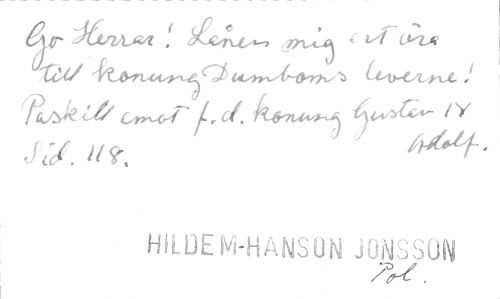 Go Herrar! Lånen mig ert öra
till konung Dumboms leverne!
Paskill emot f.d. konung Gustav IV
Adolf.
Sid. 118.
HILDEM-HANSON JONSSON
Pol.